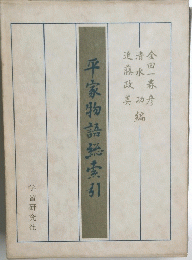 金田一春彦
清水功編
近藤政美
平家物語総索引
学習研究社